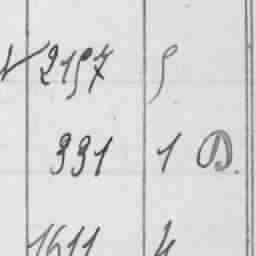 2157 5
331 1 D.
1611 4